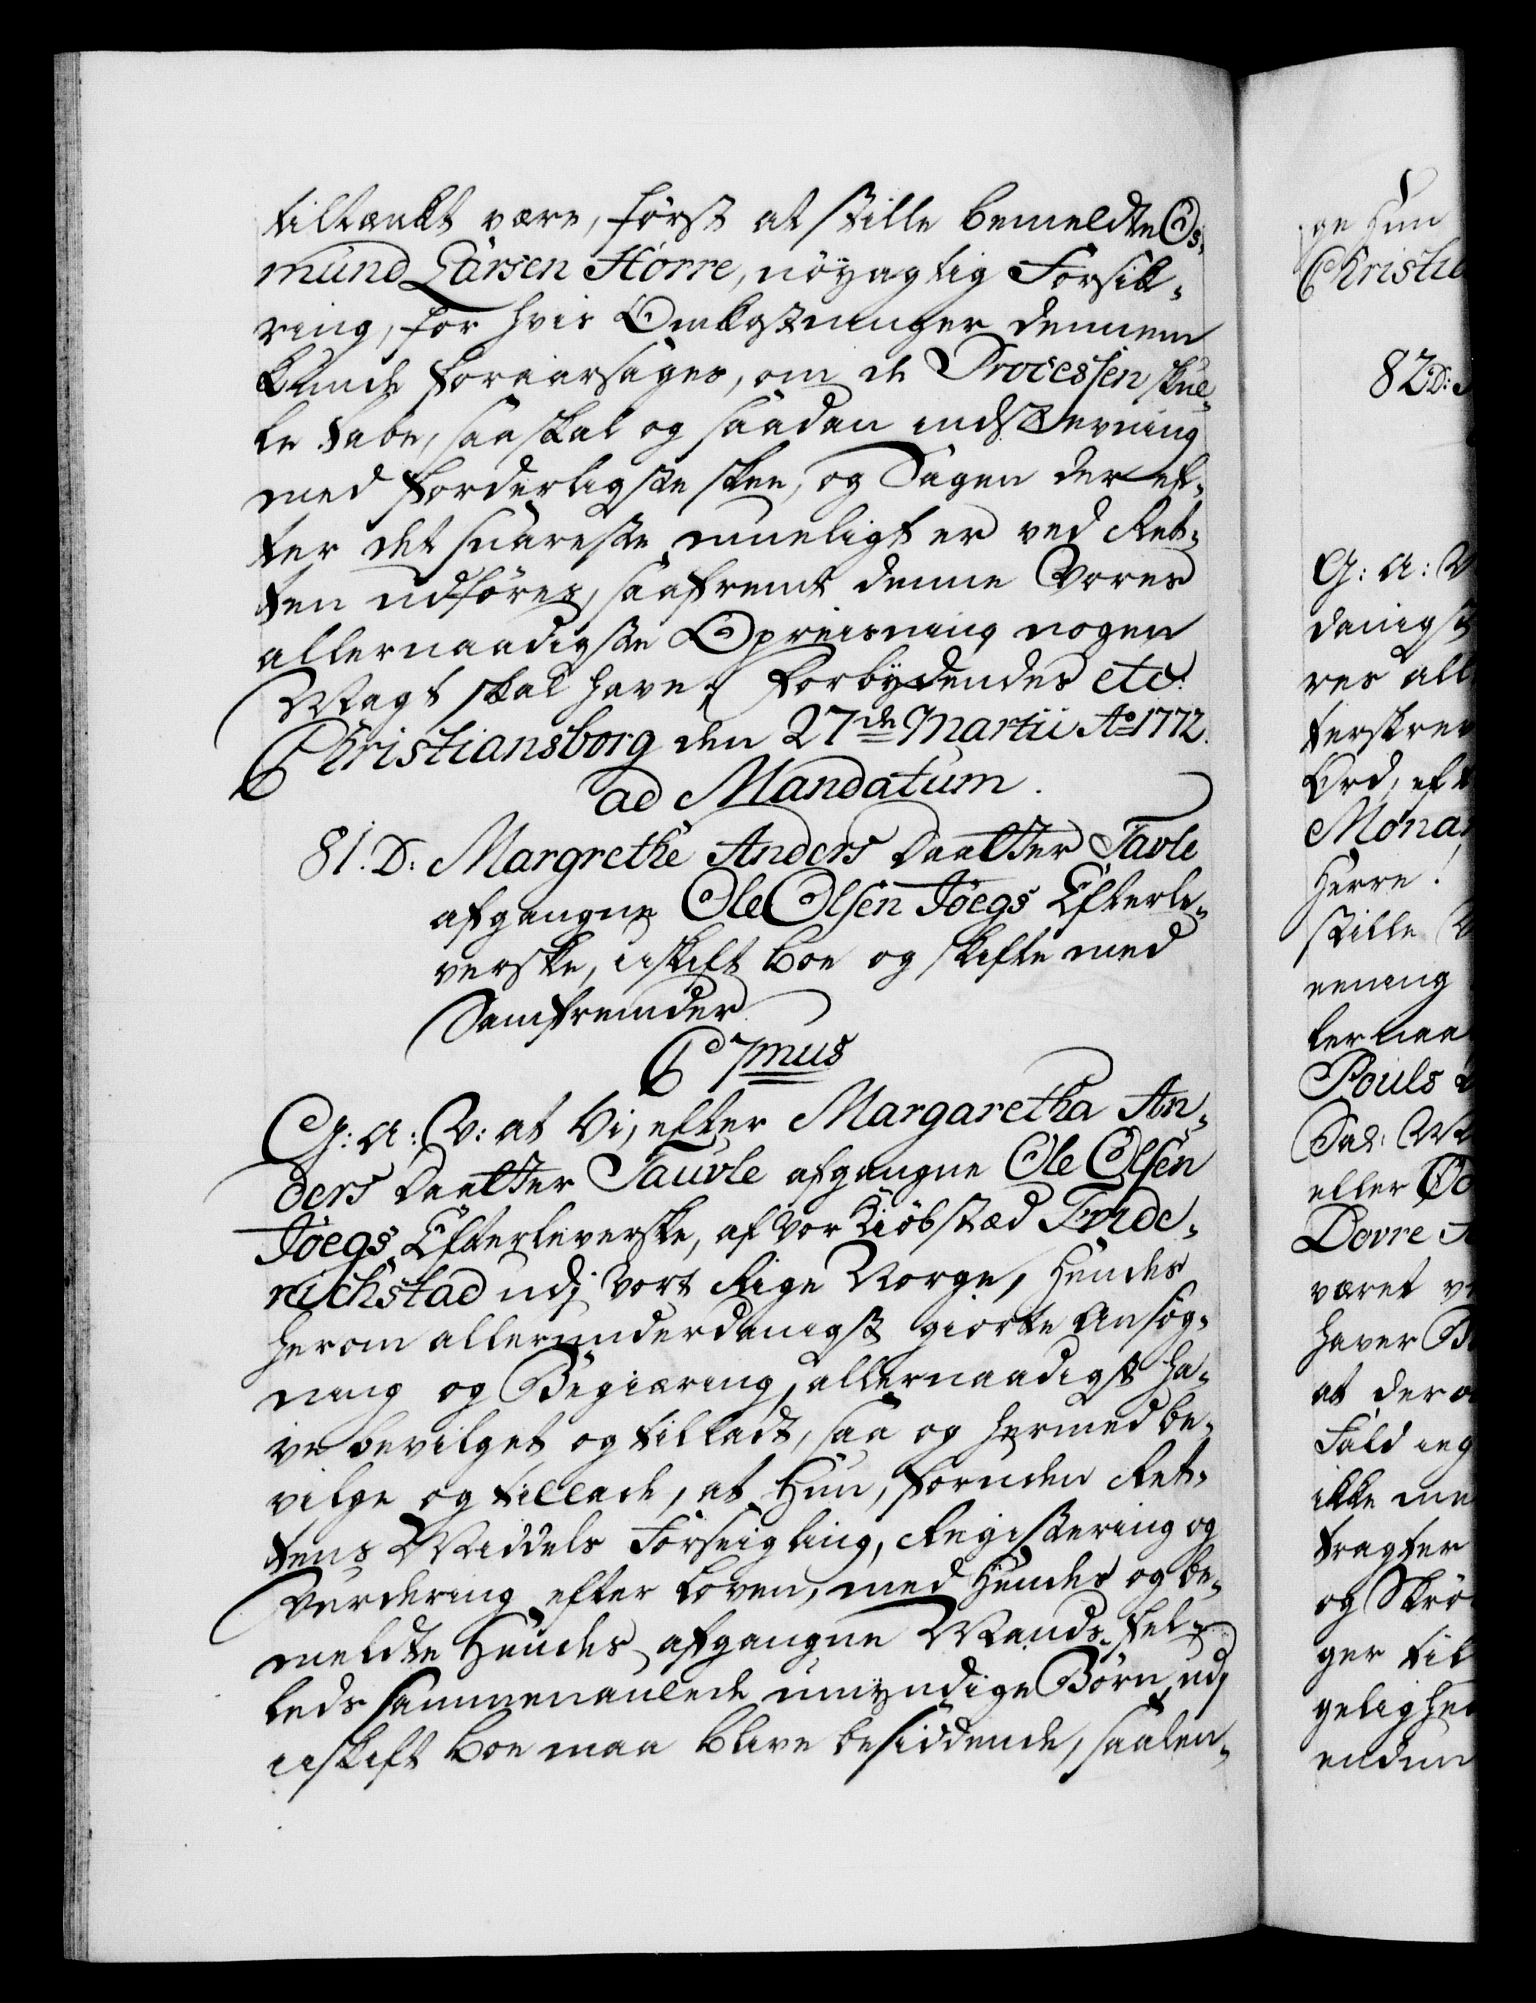 tiltænkt være, først at stille bemeldte Os¬
mund Larsen Hørre, nöyagtig Forsik¬
ring, for hvis Omkostninger dennem
kunde foraarsages, om de Processen skul¬
le tabe, saa skal og saadan indstevning
med forderligste skee, og Sagen der ef¬
ter det snareste mueligt er ved Ret¬
ten udføres, saafremt denne Vores
allernaadigste Opreisning nogen
Magt skal have; Forbydendes etc:
Christiansborg den 27de Martii Ao 1772.
ad Mandatum.
81. D: Margrethe Anders Daatter Tavle
afgangne Ole Olsen Föegs Efterle¬
verske, uskift Boe og skifte med
Samfrender
C 7mus
G: A: V: at Vi, efter Margaretha An¬
ders Daatter Tauvle afgangne Ole Olsen
Föegs Efterleverske, af vor Kiöbstæd Fride¬
richstad udj vort Rige Norge, Hendes
herom allerunderdanigst giorte Ansøg¬
ning og Begiæring, allernaadigst ha¬
ve bevilget og tilladt, saa og hermed be¬
vilge og tillade, at Hun, foruden Ret¬
tens Middels Forseigling, Registering og
Vurdering efter Loven, med Hendes og be¬
meldte Hendes afgangne Mands fel¬
leds sammenavlede umyndige Børn, udj
uskift Boe maa blive besiddende, saalen¬
ge Hun
Christia
82. D:
G: A: V
danigst
res all
terskrev
Ord, eft
Monar
Herre!
stille V
eening
lernaa
Pouls
Sal: M
eller Od
Dovre
været
haver
at der
Fald ing
ikke me
tragter
og Skrö
ger til
gelighe
endnu